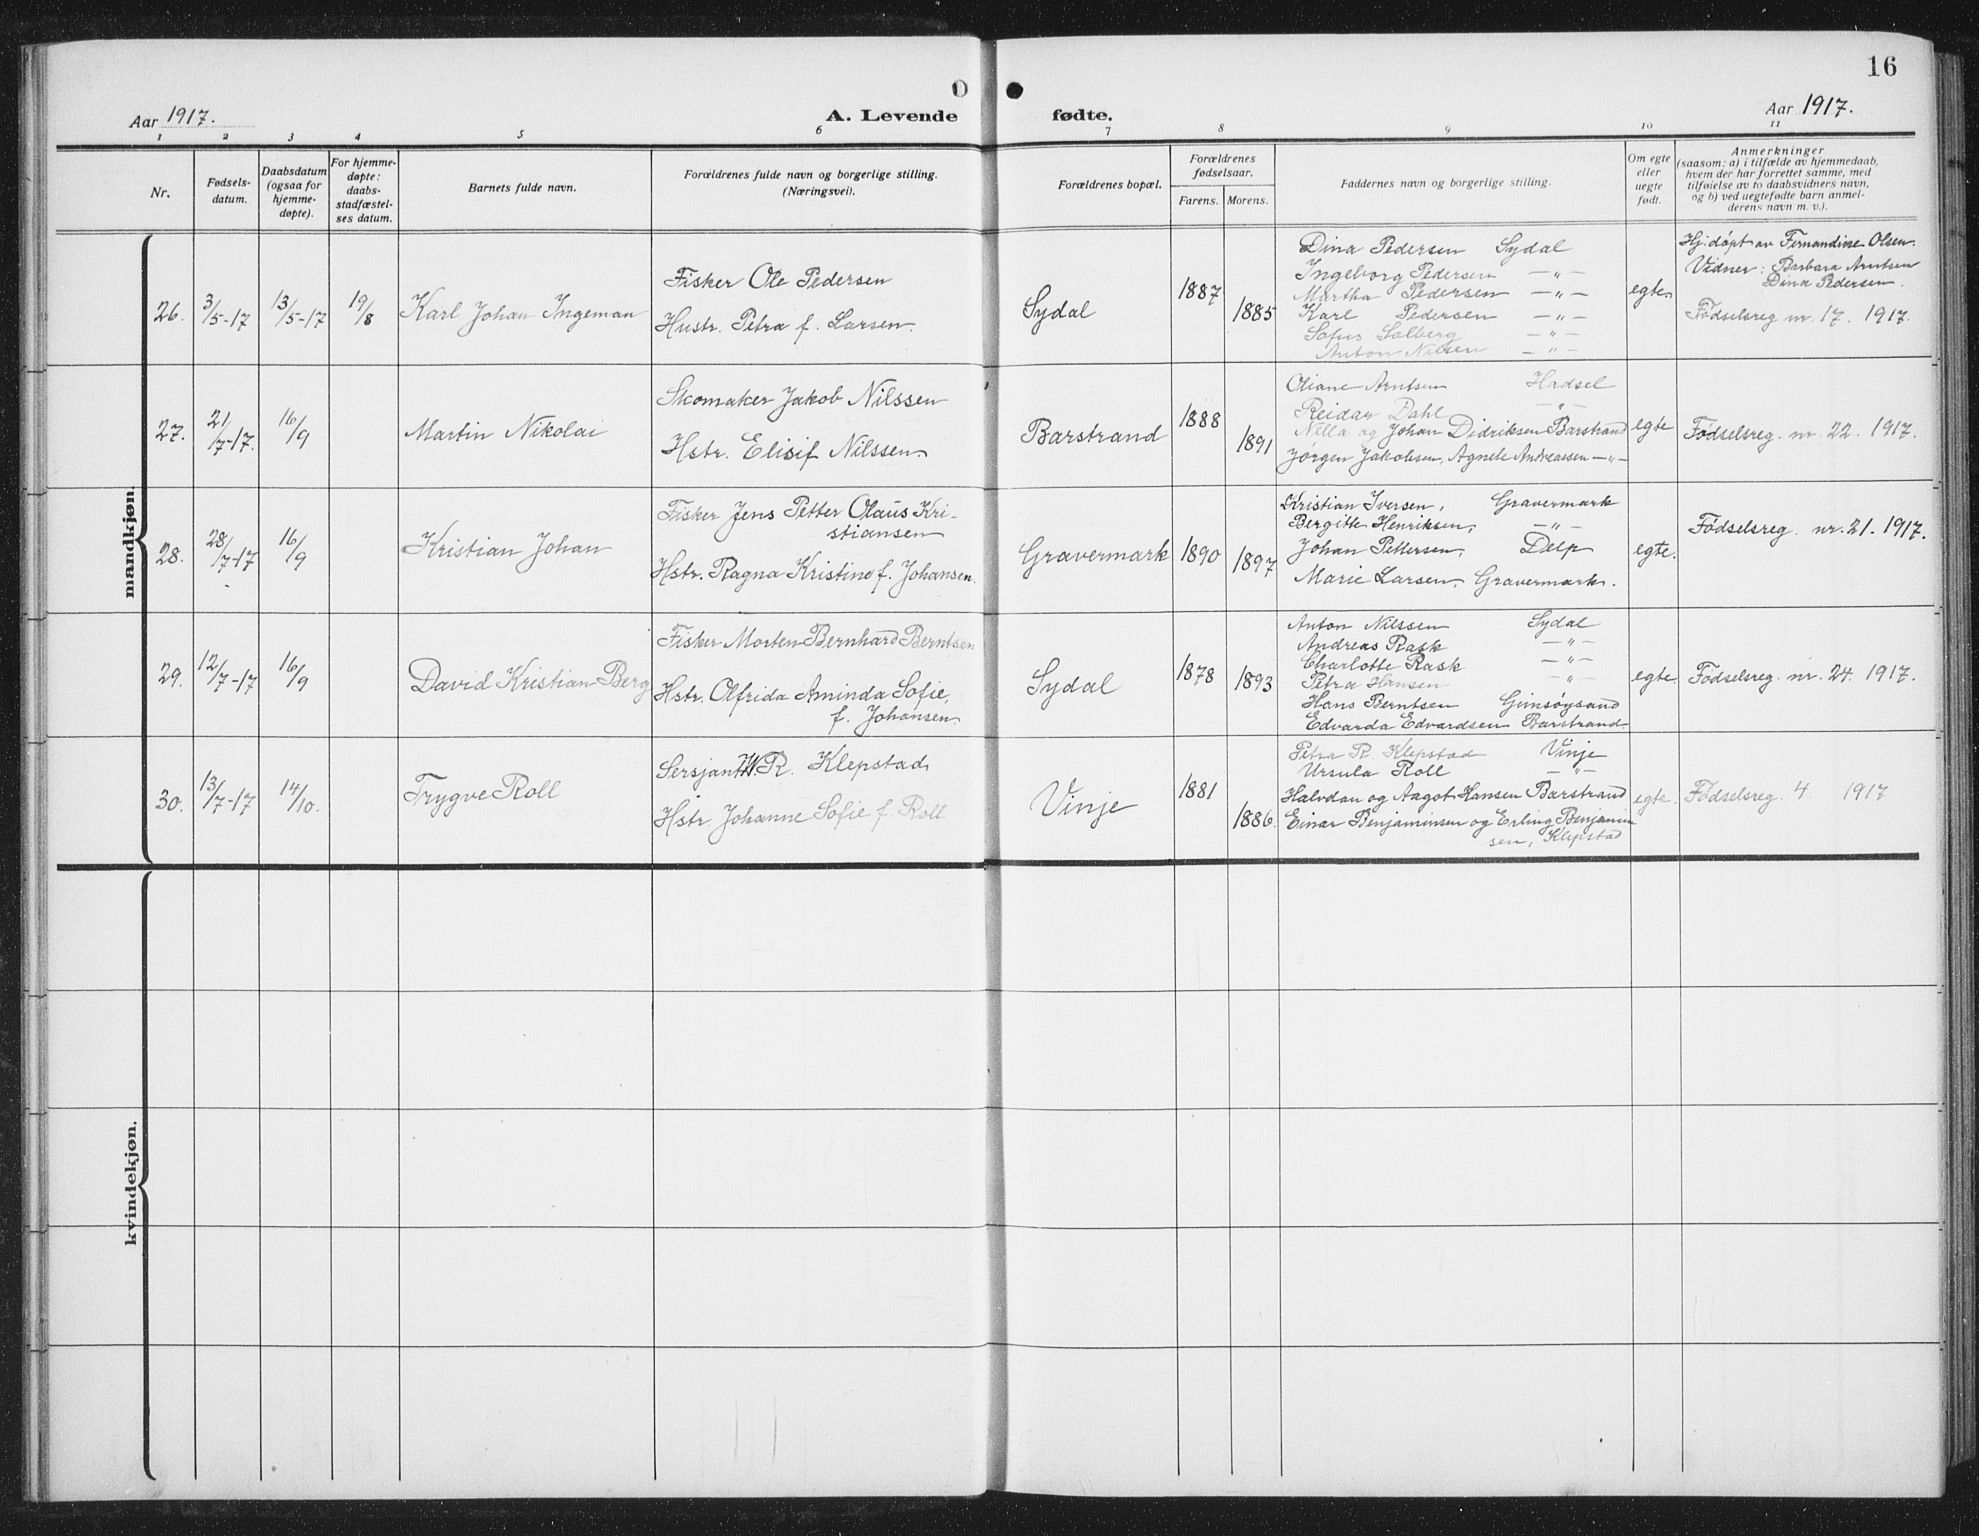 16
Aar 1917.
A. Levende fødte.
Aar 1917.
1 2 3 4 5 6 7 8 9 10 11
Nr.
Fødsels-
datum.
Daabsdatum
(ogsaa for
hjemme-
døpte).
For hjemme-
døpte:
daabs-
stadfæstel-
ses datum.
Barnets fulde navn.
Forældrenes fulde navn og borgerlige stilling.
(Næringsvei).
Forældrenes bopæl.
Forældrenes
fødselsaar.
Farens. Morens.
Faddernes navn og borgerlige stilling.
Om egte
eller
uegte
født.
Anmerkninger
(saasom: a) i tilfælde av hjemmedaab,
hvem der har forrettet samme, med
tilføielse av to daabsvidners navn,
og b) ved uegtefødte barn anmel-
derens navn m. v.).
mandkjøn.
26.
3/5-17
13/5-17
19/8
Karl Johan Ingeman
Fisker Ole Pedersen
Hustr. Petra f. Larsen.
Sydal
1887
1885
Dina Pedersen Sydal
Ingeborg Pedersen —"—
Martha Pedersen —"—
Karl Pedersen —"—
Sofus Solberg —"—
Anton Nilsen —"—
egte
Hj. døpt av Fernandine Olsen.
Vidner: Barbara Arntsen
Dina Pedersen.
Fødselsreg nr. 17. 1917.
27.
21/7-17.
16/9
Martin Nikolai
Skomaker Jakob Nilssen
Hstr. Elisif Nilssen
Barstrand
1888
1891
Oliane Arntsen Hadsel
Reidar Dahl —"—
Nella og Johan Didriksen Barstrand
Jørgen Jakobsen, Agnete Andreassen —"—
egte
Fødselsreg. nr. 22. 1917.
28.
28/7-17
16/9
Kristian Johan
Fisker Jens Petter Olaus Kri-
stiansen
Hstr. Ragna Kristine f. Johansen.
Gravermark
1890
1897
Kristian Iversen, Gravermark
Bergitte Henriksen, —"—
Johan Pettersen, Delp
Marie Larsen, Gravermark.
egte.
Fødselsreg. nr. 21. 1917.
29.
12/7-17
16/9
David Kristian Berg
Fisker Morten Bernhard Berntsen
Hstr. Olfrida Aminda Sofie,
f. Johansen.
Sydal
1878
1893
Anton Nilssen Sydal
Andreas Rask —"—
Charlotte Rask —"—
Petra Hansen —"—
Hans Berntsen Gimsøysand
Edvarda Edvardsen Barstrand
egte
Fødselsreg. nr. 24. 1917.
30.
13/7-17
14/10.
Trygve Roll
Sersjant R. Klepstad
Hstr. Johanne Sofie f. Roll
Vinje
1881
1886.
Petra R. Klepstad Vinje
Ursula Roll —"—
Halvdan og Aagot Hansen Barstrand
Einar Benjaminsen og Erling Benjamin
sen, Klepstad
egte.
Fødselsreg. 4 1917
kvindekjøn.